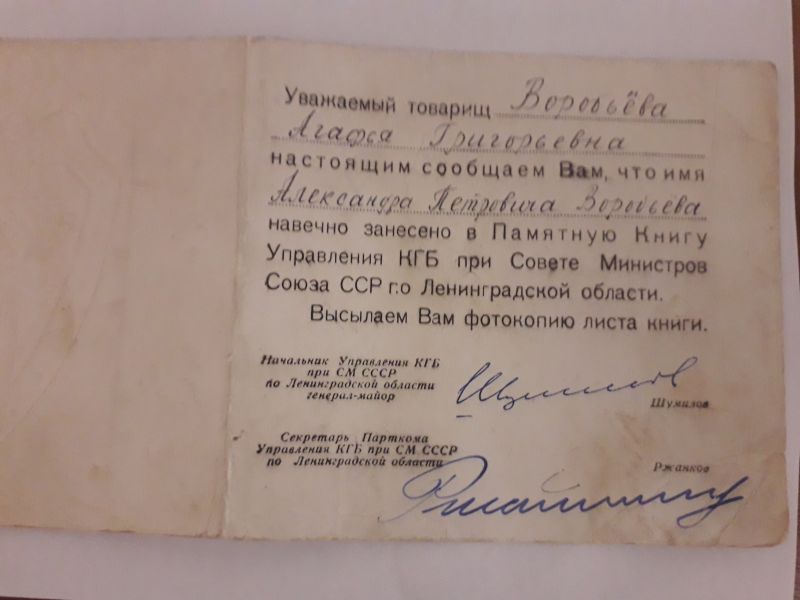 Уважаемый товарищ Воробьёва
Агафья Григорьевна
настоящим сообщаем Вам, что имя
Александра Петровича Воробьёва
навечно занесено в Памятную Книгу
Управления КГБ при Совете Министров
Союза ССР г.о Ленинградской области.
Высылаем Вам фотокопию листа книги.
Начальник Управления КГБ
при СМ СССР
по Ленинградской области
генерал-майор
Шумилов
Секретарь Парткома
Управления КГБ при СМ СССР
по Ленинградской области
Ржанков